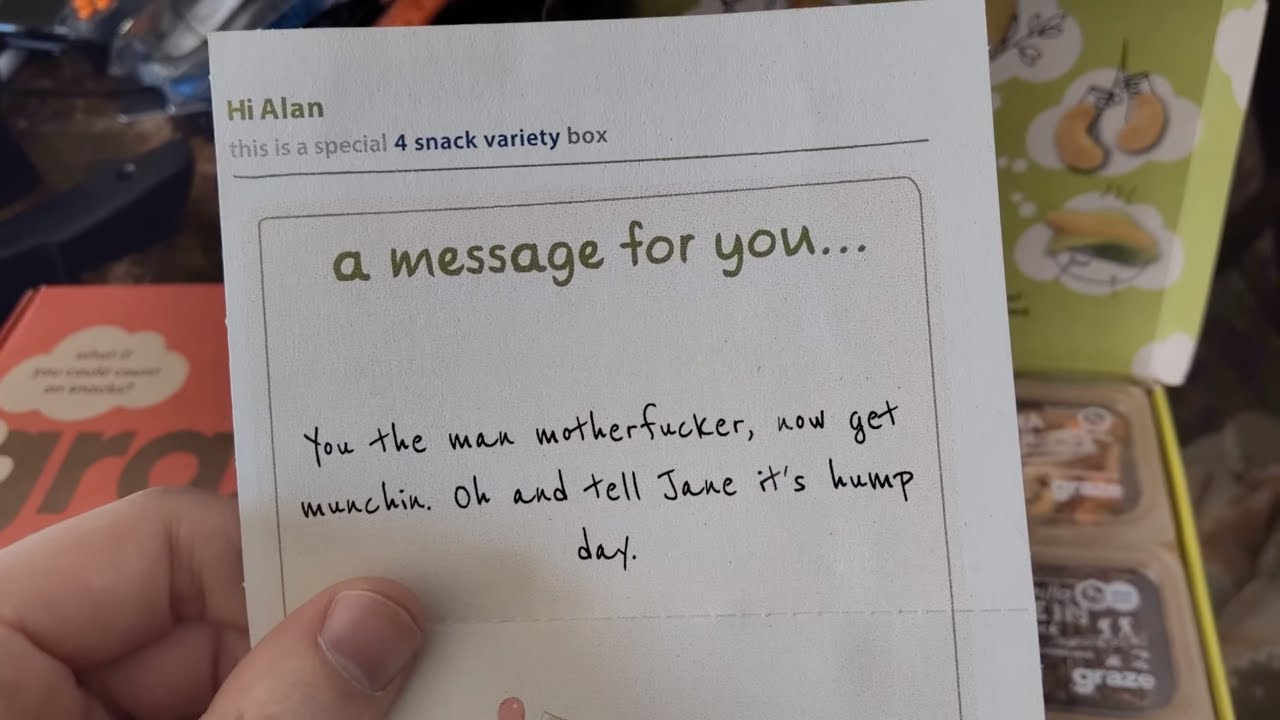 Hi Alan
this is a special 4 snack variety box
a message for you...
You the man motherfucker, now get
munchin. Oh and tell Jane it's hump
day.
what if
you could count
on snacks?
gra
graze
graze